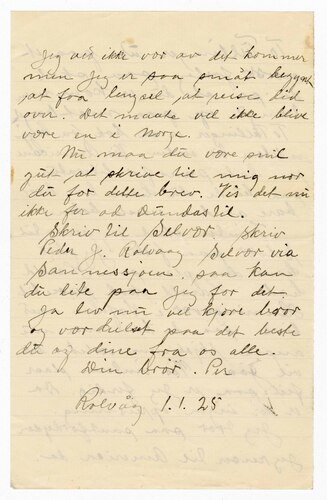 Jeg ved ikke vor av det kommer
men jeg er saa småt begynt
at faa lengsel at reise hid
over. Det maate vel ikke blive
være en i Norge.
Nu maa du være snil
gut at skrive til mig nor
du for dette brev. Vis det nu
ikke for ad Dundas til.
Skriv til Selvor skriv
Peder J. Rolvaag Selvor via
Sannessjøen. saa kan
du lite paa jeg for det
Ja lev nu vel kjere bror
og vær hilset paa det beste
du og dine fra os alle.
Din Bror. Per
Rolvåg 1.1.25